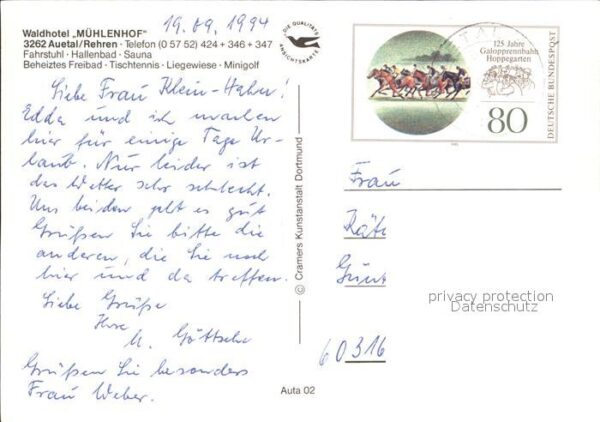 19.09.1994
Waldhotel „MÜHLENHOF“
3262 Auetal/Rehren · Telefon (0 57 52) 424 + 346 + 347
Fahrstuhl · Hallenbad · Sauna
Beheiztes Freibad · Tischtennis · Liegewiese · Minigolf
DIE QUALITÄTS
ANSICHTSKARTE
Liebe Frau Klein-Hahn!
Edda und ich machen
hier für einige Tage Ur-
laub. Nur leider ist
das Wetter sehr schlecht.
Uns beiden geht es gut
Grüßen Sie bitte die
anderen, die Sie noch
hier und da treffen.
Liebe Grüße
Ihre
U. Göttsche
Grüßen Sie besonders
Frau Weber.
© Cramers Kunstanstalt Dortmund
Auta 02
125 Jahre
Galopprennbahn
Hoppegarten
80
DEUTSCHE BUNDESPOST
Frau
Käte
Günt
privacy protection
Datenschutz
60316